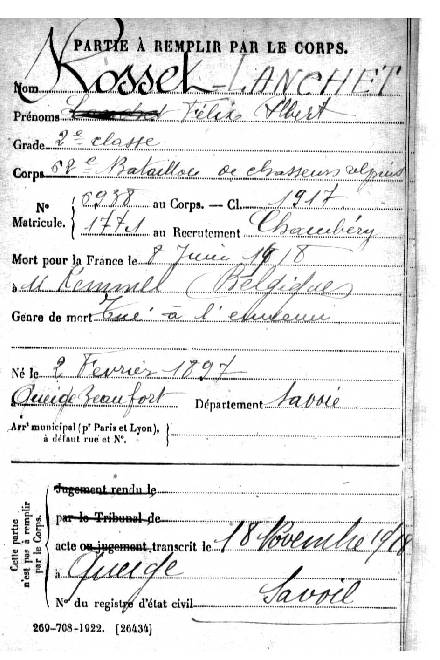 PARTIE À REMPLIR PAR LE CORPS.
Nom Rosset-LANCHET
Prénoms Félix Albert
Grade 2e classe
Corps 62e Bataillon de chasseurs alpins
N° Matricule. { 6938 au Corps. — Cl. 1917
1771 au Recrutement Chambéry
Mort pour la France le 8 Juin 1918
à Mt Kemmel (Belgique)
Genre de mort Tué à l'ennemi
Né le 2 Février 1897
à Queige Beaufort Département Savoie
Arrt municipal (pr Paris et Lyon),
à défaut rue et N°.
Cette partie
n'est pas à remplir
par le Corps.
Jugement rendu le
par le Tribunal de
acte ou jugement transcrit le 18 Novembre 1918
à Queige
N° du registre d'état civil Savoie
269-708-1922. [26434]